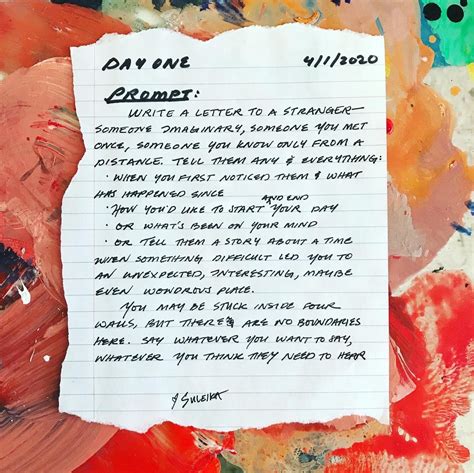 DAY ONE 4/1/2020
PROMPT:
WRITE A LETTER TO A STRANGER—
SOMEONE IMAGINARY, SOMEONE YOU MET
ONCE, SOMEONE YOU KNOW ONLY FROM A
DISTANCE. TELL THEM ANY & EVERYTHING:
· WHEN YOU FIRST NOTICED THEM & WHAT
HAS HAPPENED SINCE
· HOW YOU'D LIKE TO START AND END YOUR DAY
· OR WHAT'S BEEN ON YOUR MIND
· OR TELL THEM A STORY ABOUT A TIME
WHEN SOMETHING DIFFICULT LED YOU TO
AN UNEXPECTED, INTERESTING, MAYBE
EVEN WONDROUS PLACE.
YOU MAY BE STUCK INSIDE FOUR
WALLS, BUT THERE ARE NO BOUNDARIES
HERE. SAY WHATEVER YOU WANT TO SAY,
WHATEVER YOU THINK THEY NEED TO HEAR
SULEIKA